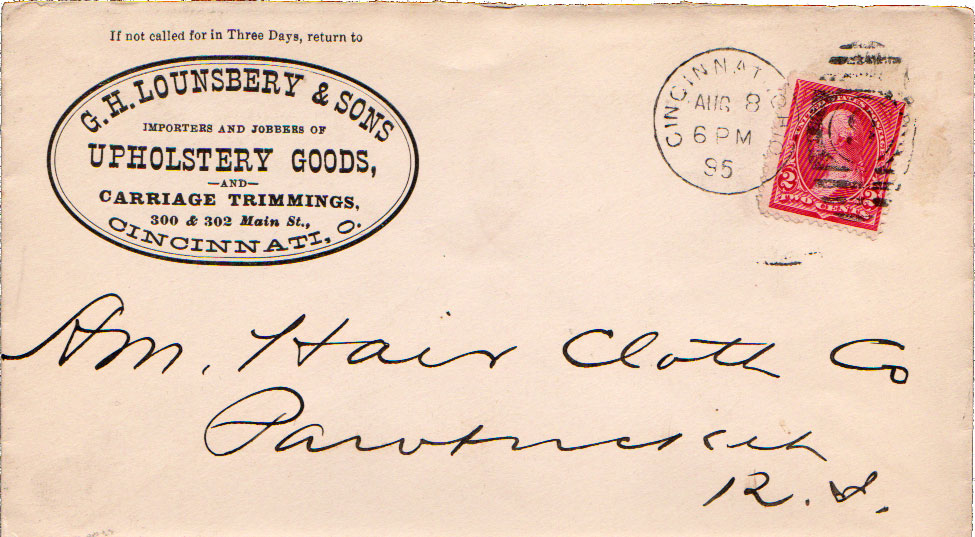 If not called for in Three Days, return to
G. H. LOUNSBERY & SONS
IMPORTERS AND JOBBERS OF
UPHOLSTERY GOODS,
—AND—
CARRIAGE TRIMMINGS,
300 & 302 Main St.,
CINCINNATI, O.
CINCINNATI, OHIO
AUG 8
6 PM
95
2 2
TWO CENTS
Am. Hair Cloth Co
Pawtucket
R. I.